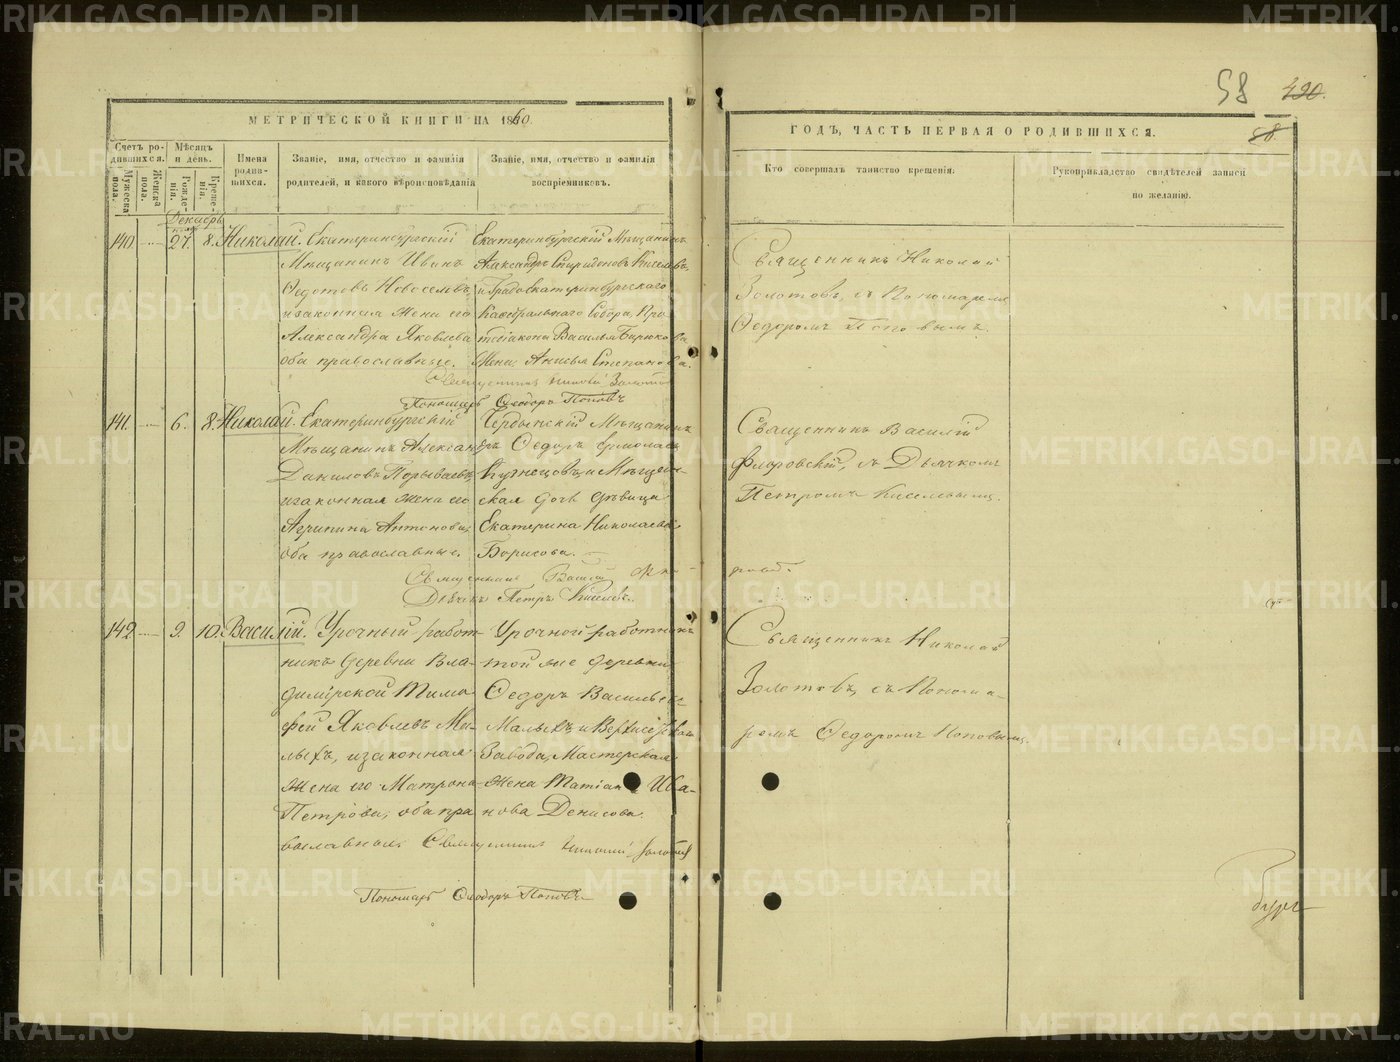 METRIKI.GASO-URAL.RU
58 420.
МЕТРИЧЕСКОЙ КНИГИ НА 1860
ГОДЪ, ЧАСТЬ ПЕРВАЯ О РОДИВШИХСЯ.
58.
Счетъ родившихся.
Мужеска пола.
Женска пола.
Мѣсяцъ и день.
Рожденія.
Крещенія.
Имена родившихся.
Званіе, имя, отчество и фамилія
родителей, и какого вѣроисповѣданія
Званіе, имя, отчество и фамилія
воспріемниковъ.
Кто совершалъ таинство крещенія.
Рукоприкладство свидѣтелей записи
по желанію.
Декабрь
140 27. 8. Николай.
Екатеринбургскій
Мѣщанинъ Иванъ
Ѳедотовъ Новоселовъ,
и законная жена его
Александра Яковлева
оба православные.
Екатеринбургскій Мѣщанинъ
Александръ Спиридоновъ Киселевъ,
и Градоекатеринбургскаго
Кафедральнаго Собора, Про
тодіакона Василья Бирюкова
жена, Анисья Степанова.
Священникъ Николай
Золотовъ, съ Пономаремъ
Ѳедоромъ Поповымъ.
Священникъ Николай Золотовъ
Пономарь Ѳеодоръ Поповъ
141. 6. 8. Николай.
Екатеринбургскій
Мѣщанинъ Алексан
Даниловъ Порываевъ,
и законная жена его
Антонова,
оба православные.
Чердынскій Мѣщанинъ
дръ Ѳедоръ Ермолаевъ
Кузнецовъ, и Мѣщан-
ская дочь дѣвица
Екатерина Николаева
Борисова.
Священникъ Василій
Флоровскій, съ Дьячкомъ
Петромъ Киселевымъ.
Священникъ Василій Фло-
ровскій.
Дьячекъ Петръ Киселевъ.
142 9. 10. Василій.
Урочный работ-
никъ деревни Вла-
димірской Тимо
фей Яковлевъ Ма-
лыхъ, и законная
жена его Матрона
Петрова, оба пра
вославные.
Урочной работникъ
той же деревни
Ѳедоръ Васильевъ
Малыхъ, и Верхисетскаго
Завода, Мастерская
жена Татіана Ива-
нова Денисова.
Священникъ Николай
Золотовъ, съ Понома-
ремъ Ѳедоромъ Поповымъ.
Священникъ Николай Золотовъ
Пономарь Ѳеодоръ Поповъ